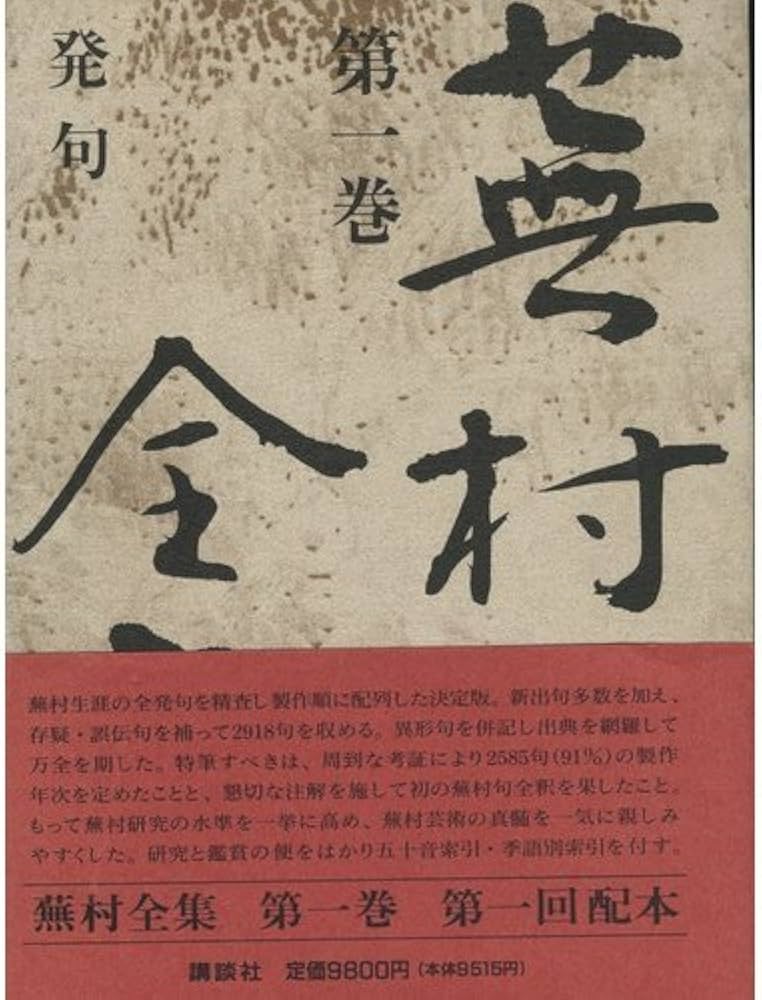 蕪村
全
第一巻
発句
蕪村生涯の全発句を精査し製作順に配列した決定版。新出句多数を加え、
存疑・誤伝句を補って2918句を収める。異形句を併記し出典を網羅して
万全を期した。特筆すべきは、周到な考証により2585句(91%)の製作
年次を定めたことと、懇切な注解を施して初の蕪村句全釈を果したこと。
もって蕪村研究の水準を一挙に高め、蕪村芸術の真髄を一気に親しみ
やすくした。研究と鑑賞の便をはかり五十音索引・季語別索引を付す。
蕪村全集 第一巻 第一回配本
講談社 定価9800円(本体9515円)